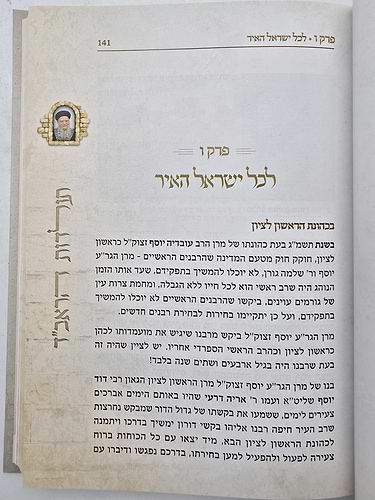 פרק ו • לכל ישראל האיר
141
פרק ו
לכל ישראל האיר
תולדות הראב"ד
בכהונת הראשון לציון
בשנת תשמ"ג בעת כהונתו של מרן הרב עובדיה יוסף זצוק"ל כראשון
לציון, חוקק חוק מטעם המדינה שהרבנים הראשיים - מרן הגר"ע
יוסף ור' שלמה גורן, לא יוכלו להמשיך בתפקידם, שעד אותו הזמן
הנוהג היה שרב ראשי הוא לכל חייו ללא הגבלה, ומחמת צרות עין
של גורמים עוינים, ביקשו שהרבנים הראשיים לא יוכלו להמשיך
בתפקידם, ועל כן יתקיימו בחירות לבחירת רבנים חדשים.
מרן הגר"ע יוסף זצוק"ל ביקש מרבנו שיגיש את מועמדותו לכהן
כראשון לציון וכהרב הראשי הספרדי אחריו. יש לציין שהיה זה
בעת שרבנו היה בגיל ארבעים ושתים שנה בלבד!
בנו של מרן הגר"ע יוסף זצוק"ל מרן הראשון לציון הגאון רבי דוד
יוסף שליט"א ועמו ר' אריה דרעי שהיו באותם הימים אברכים
צעירים לימים, ששמעו את בקשתו של גדול הדור שמבקש נחרצות
שרב העיר חיפה רבנו אליהו בקשי דורון ימשיך בדרכו ויתמנה
לכהונת הראשון לציון הבא, מיד יצאו עם כל הכוחות ברוח
צעירה לפעול ולהפעיל למען בחירתו, בדרכם נפגשו ודיברו עם